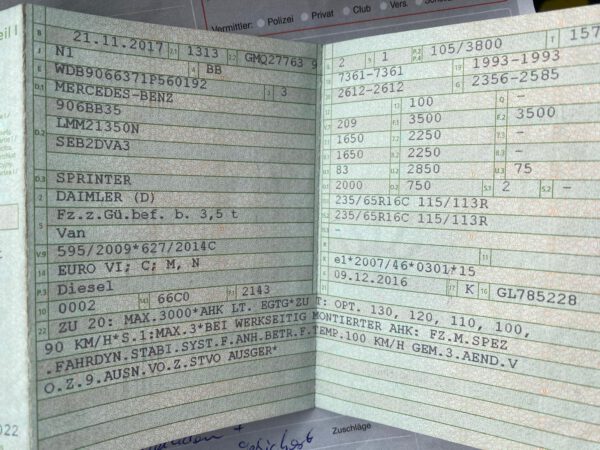 Vermittler: Polizei Privat Club Vers.
B 21.11.2017 2.1 1313 2.2 GMQ27763 9
J N1 4 BB
E WDB9066371P560192 3 3
D.1 MERCEDES-BENZ
906BB35
D.2 LMM21350N
SEB2DVA3
D.3 SPRINTER
2 DAIMLER (D)
5 Fz.z.Gü.bef. b. 3,5 t
Van
V.9 595/2009*627/2014C
14 EURO VI; C; M, N
P.3 Diesel
10 0002 14.1 66C0 P.1 2143
22 ZU 20: MAX.3000*AHK LT. EGTG*ZU T: OPT. 130, 120, 110, 100,
90 KM/H*S.1:MAX.3*BEI WERKSEITIG MONTIERTER AHK: FZ.M.SPEZ
.FAHRDYN.STABI.SYST.F.ANH.BETR.F.TEMP.100 KM/H GEM.3.AEND.V
O.Z.9.AUSN.VO.Z.STVO AUSGER*
L 2 9 1 P.2 P.4 105/3800 T 157
18 7361-7361 19 1993-1993
20 2612-2612 G 2356-2585
13 100 Q -
V.7 209 F.1 3500 F.2 3500
7.1 1650 7.2 2250 7.3 -
8.1 1650 8.2 2250 8.3 -
U.1 83 U.2 2850 U.3 75
O.1 2000 O.2 750 S.1 2 S.2 -
15.1 235/65R16C 115/113R
15.2 235/65R16C 115/113R
15.3 -
R 11
K e1*2007/46*0301*15
6 09.12.2016 17 K 16 GL785228
21
022
Zuschläge